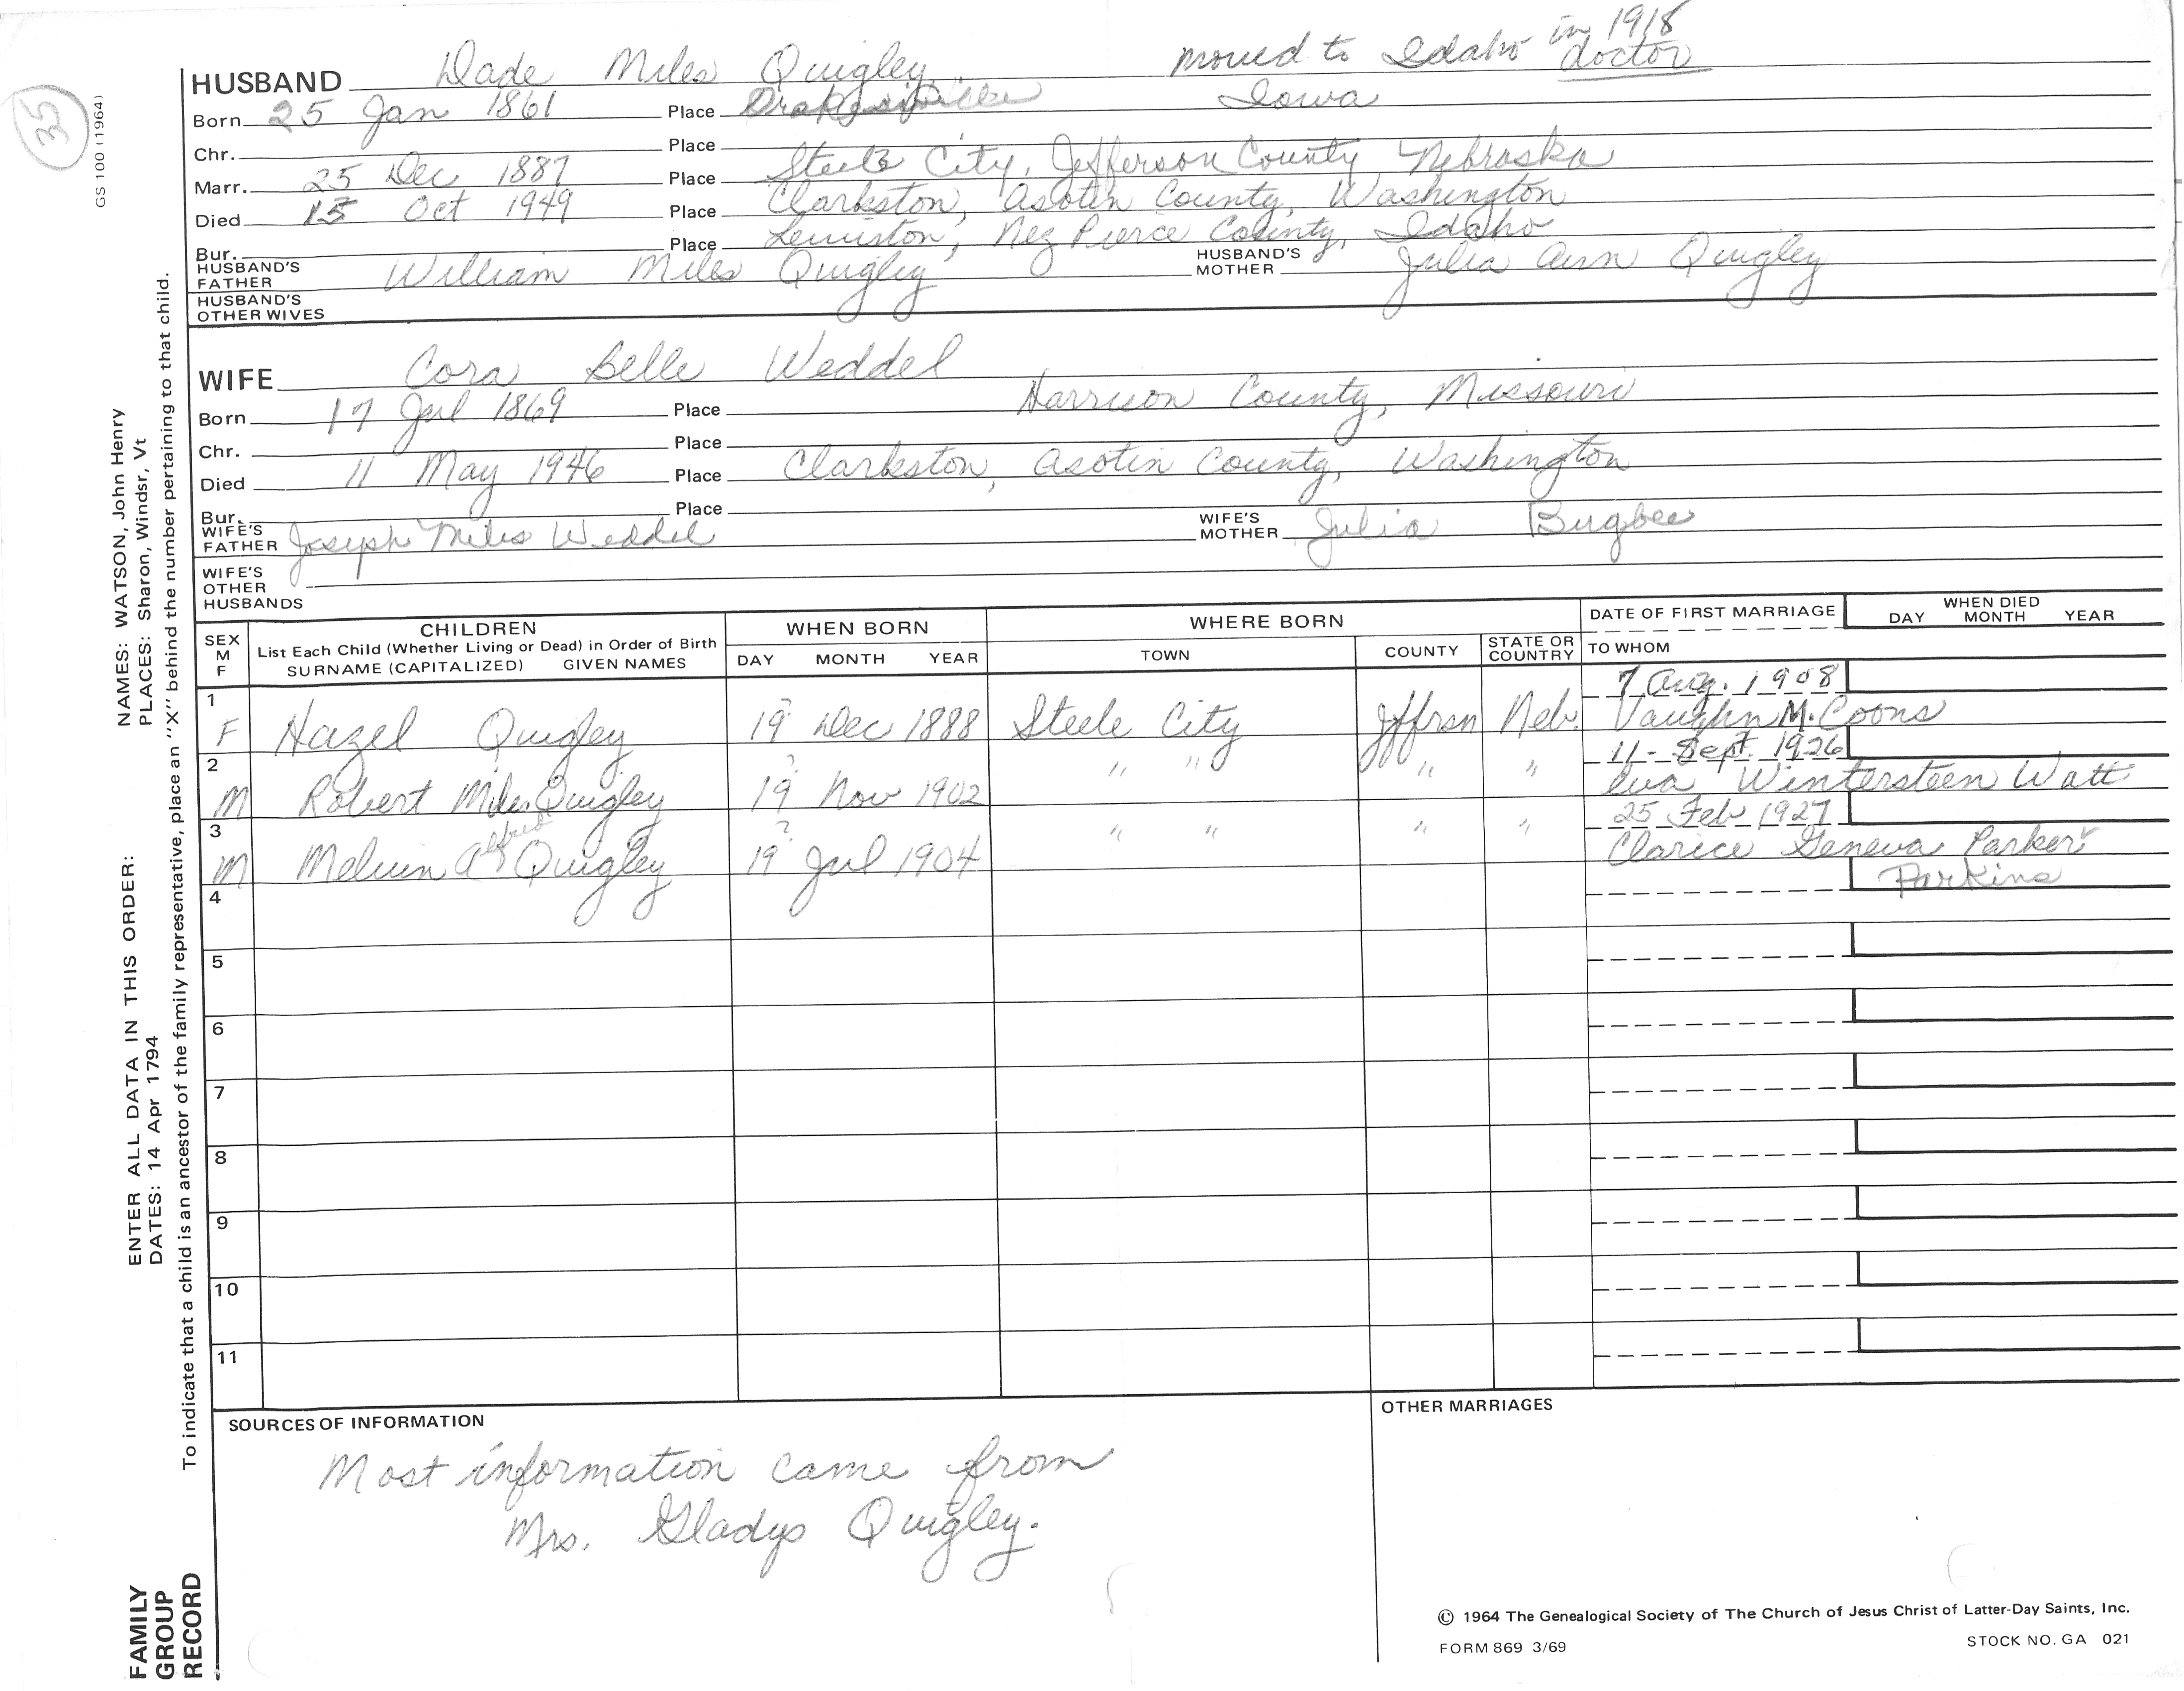 35
GS 100 (1964)
moved to Idaho in 1918
doctor
HUSBAND Dade Miles Quigley
Born 25 Jan 1861 Place Drakesville Iowa
Chr. Place
Marr. 25 Dec 1887 Place Steele City, Jefferson County Nebraska
Died 15 Oct 1949 Place Clarkston, Asotin County, Washington
Bur. Place Lewiston, Nez Pierce County, Idaho
HUSBAND'S FATHER William Miles Quigley HUSBAND'S MOTHER Julia Ann Quigley
HUSBAND'S OTHER WIVES
WIFE Cora Belle Weddel
Born 17 Jul 1869 Place Harrison County, Missouri
Chr. Place
Died 11 May 1946 Place Clarkston, Asotin County, Washington
Bur. Place
WIFE'S FATHER Joseph Miles Weddel WIFE'S MOTHER Julia Bugbee
WIFE'S OTHER HUSBANDS
SEX M F
CHILDREN
List Each Child (Whether Living or Dead) in Order of Birth
SURNAME (CAPITALIZED) GIVEN NAMES
WHEN BORN
DAY MONTH YEAR
WHERE BORN
TOWN COUNTY STATE OR COUNTRY
DATE OF FIRST MARRIAGE
TO WHOM
WHEN DIED
DAY MONTH YEAR
1 7 Aug. 1908
F Hazel Quigley 19 ? Dec 1888 Steele City Jffrsn Neb. Vaughn M. Coons
2 11 - Sept. 1926
M Robert Miles Quigley 19 ? Nov 1902 " " " " Eva Wintersteen Watt
3 25 Feb 1927
M Melvin Alfred Quigley 19 ? Jul 1904 " " " " Clarice Geneva Parker
4 Parkins
5
6
7
8
9
10
11
SOURCES OF INFORMATION
Most information came from
Mrs. Gladys Quigley.
OTHER MARRIAGES
© 1964 The Genealogical Society of The Church of Jesus Christ of Latter-Day Saints, Inc.
FORM 869 3/69 STOCK NO. GA 021
FAMILY GROUP RECORD
ENTER ALL DATA IN THIS ORDER:
DATES: 14 Apr 1794
NAMES: WATSON, John Henry
PLACES: Sharon, Windsr, Vt
To indicate that a child is an ancestor of the family representative, place an "X" behind the number pertaining to that child.